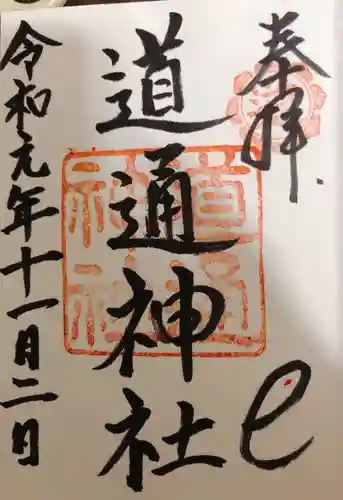 奉拝
道通神社
道通神社
令和元年十一月二日